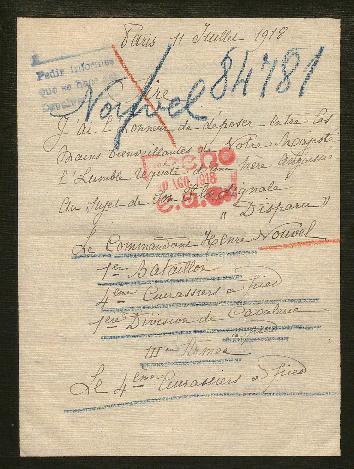 Paris 11 Juillet 1918
Pedir informes
que se hace
84781
Nouvel
Sire
J'ai l'honneur de déposer entre les
mains bienveillantes de Votre Majesté
l'humble requête
Au Sujet de son signalé
" Disparu "
Le Commandant Henri Nouvel
1er Bataillon
4ème Cuirassiers à pied
1ère Division de Cavalerie
IIIe Armée
Le 4ème Cuirassiers à pied